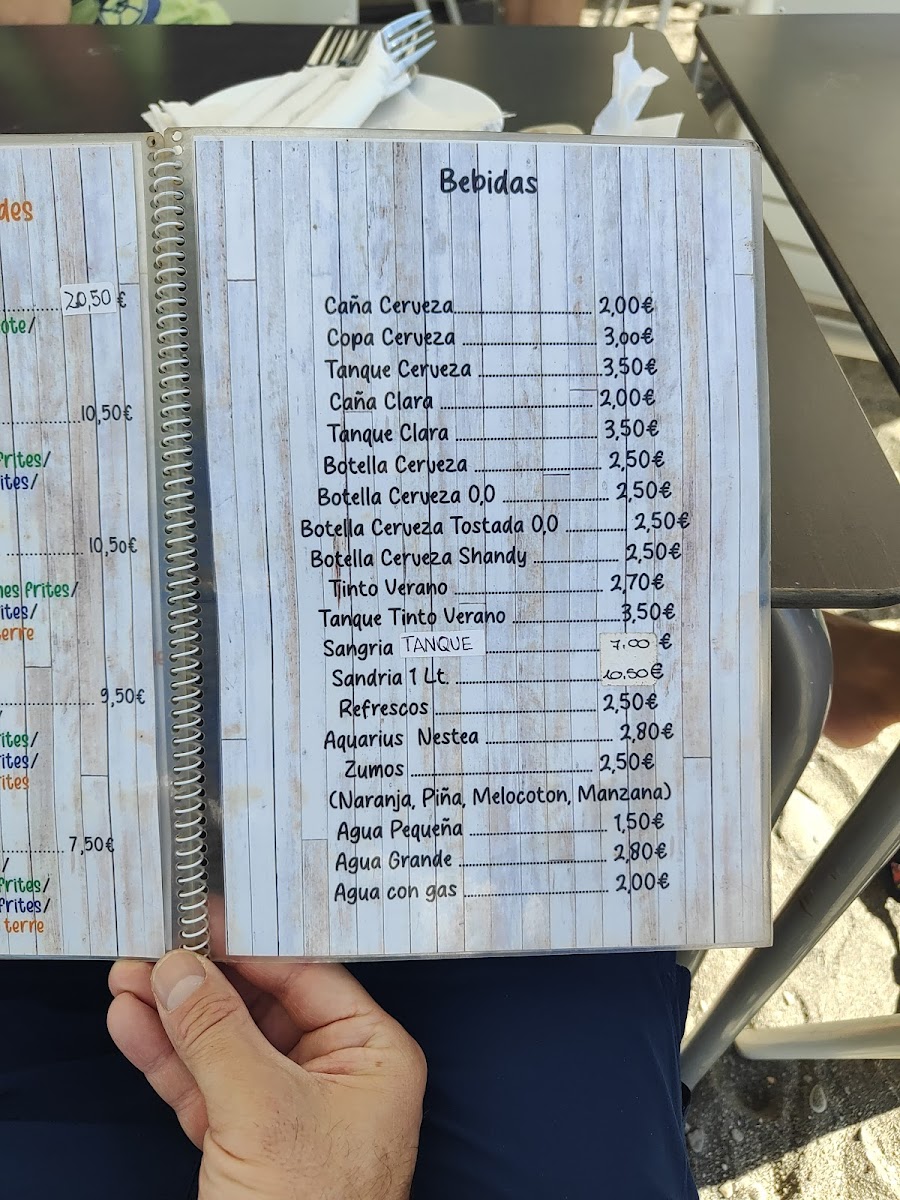 des
20,50 €
ote/
10,50€
frites/
ites/
10,50€
nes frites/
ites/
terre
9,50€
/
ites/
ites/
ites
7,50€
/
frites/
frites/
terre
Bebidas
Caña Cerveza 2,00€
Copa Cerveza 3,00€
Tanque Cerveza 3,50€
Caña Clara 2,00€
Tanque Clara 3,50€
Botella Cerveza 2,50€
Botella Cerveza 0,0 2,50€
Botella Cerveza Tostada 0,0 2,50€
Botella Cerveza Shandy 2,50€
Tinto Verano 2,70€
Tanque Tinto Verano 3,50€
Sangria TANQUE 7.00 €
Sandria 1 Lt. 10.50€
Refrescos 2,50€
Aquarius Nestea 2,80€
Zumos 2,50€
(Naranja, Piña, Melocoton, Manzana)
Agua Pequeña 1,50€
Agua Grande 2,80€
Agua con gas 2,00€